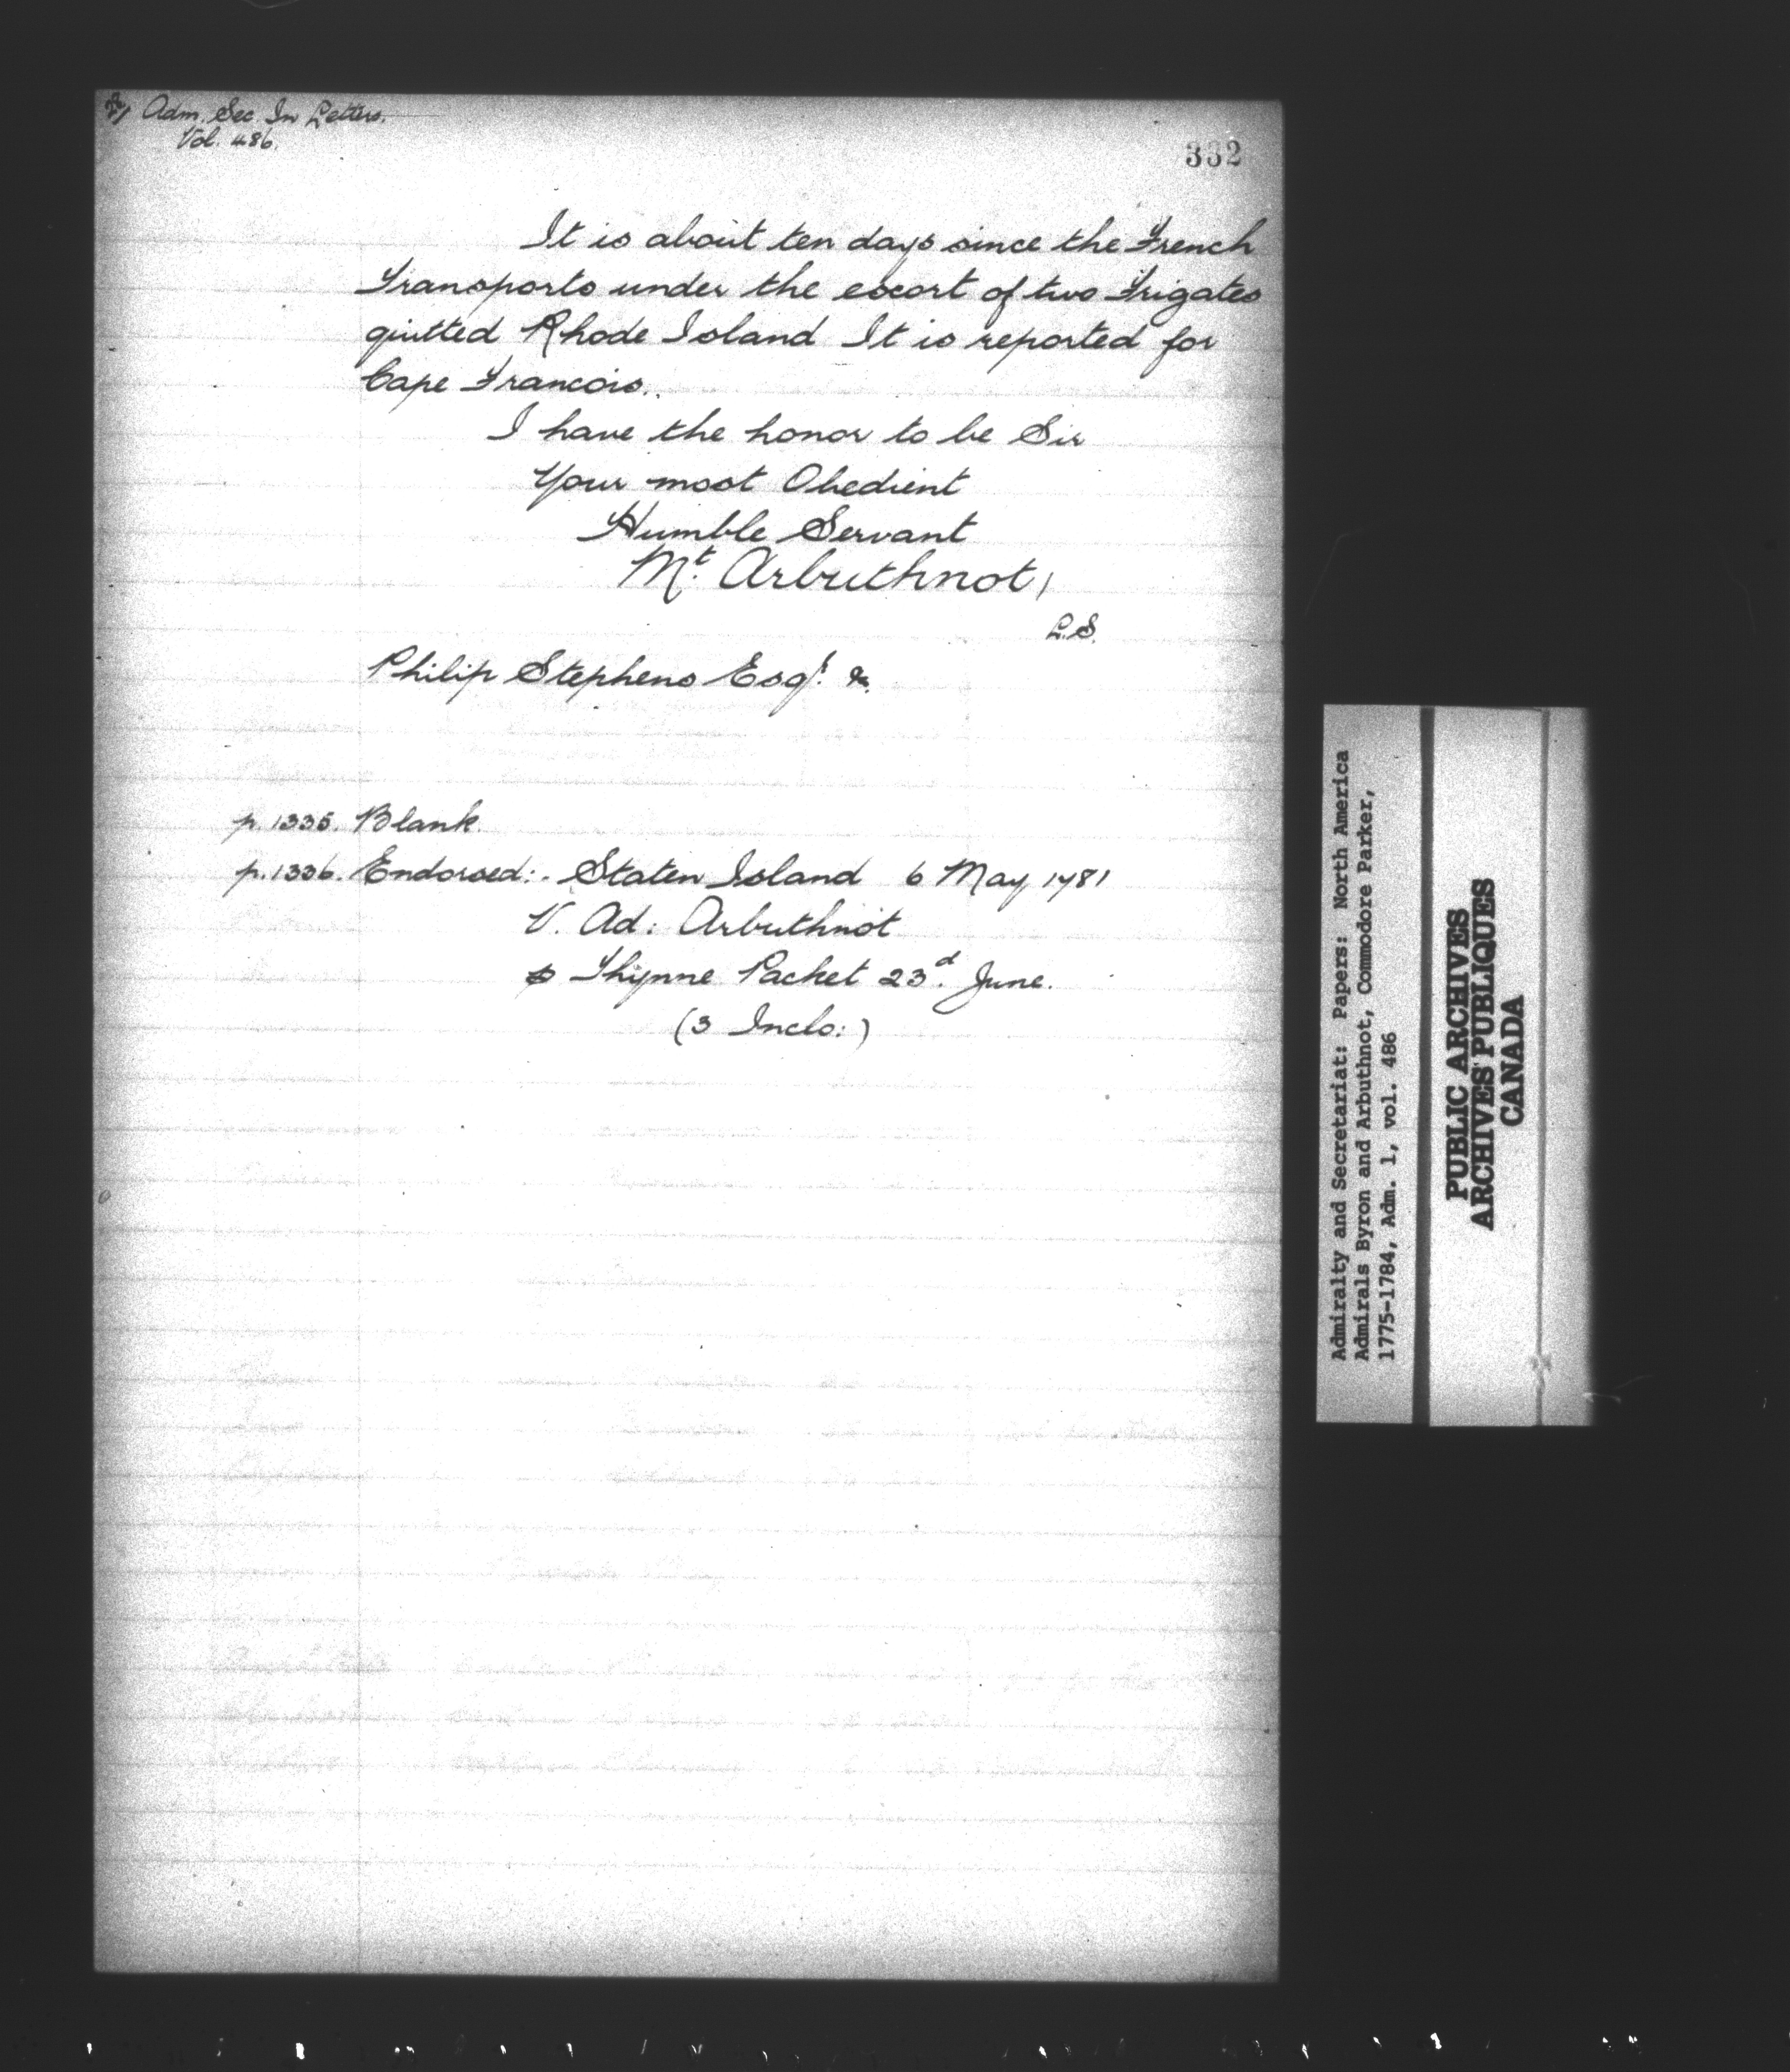 Adm. Sec. In Letters.
Vol. 486.
332
It is about ten days since the French
Transports under the escort of two Frigates
quitted Rhode Island It is reported for
Cape Francois..
I have the honor to be Sir
Your most Obedient
Humble Servant
Mt. Arbuthnot
L.S.
Philip Stephens Esqr. &.
p. 1335. Blank.
p. 1336. Endorsed:- Staten Island 6 May 1781
V. Ad: Arbuthnot
p Thynne Packet 23d. June.
(3 Inclo:)
Admiralty and Secretariat: Papers: North America
Admirals Byron and Arbuthnot, Commodore Parker,
1775-1784, Adm. 1, vol. 486
PUBLIC ARCHIVES
ARCHIVES PUBLIQUES
CANADA